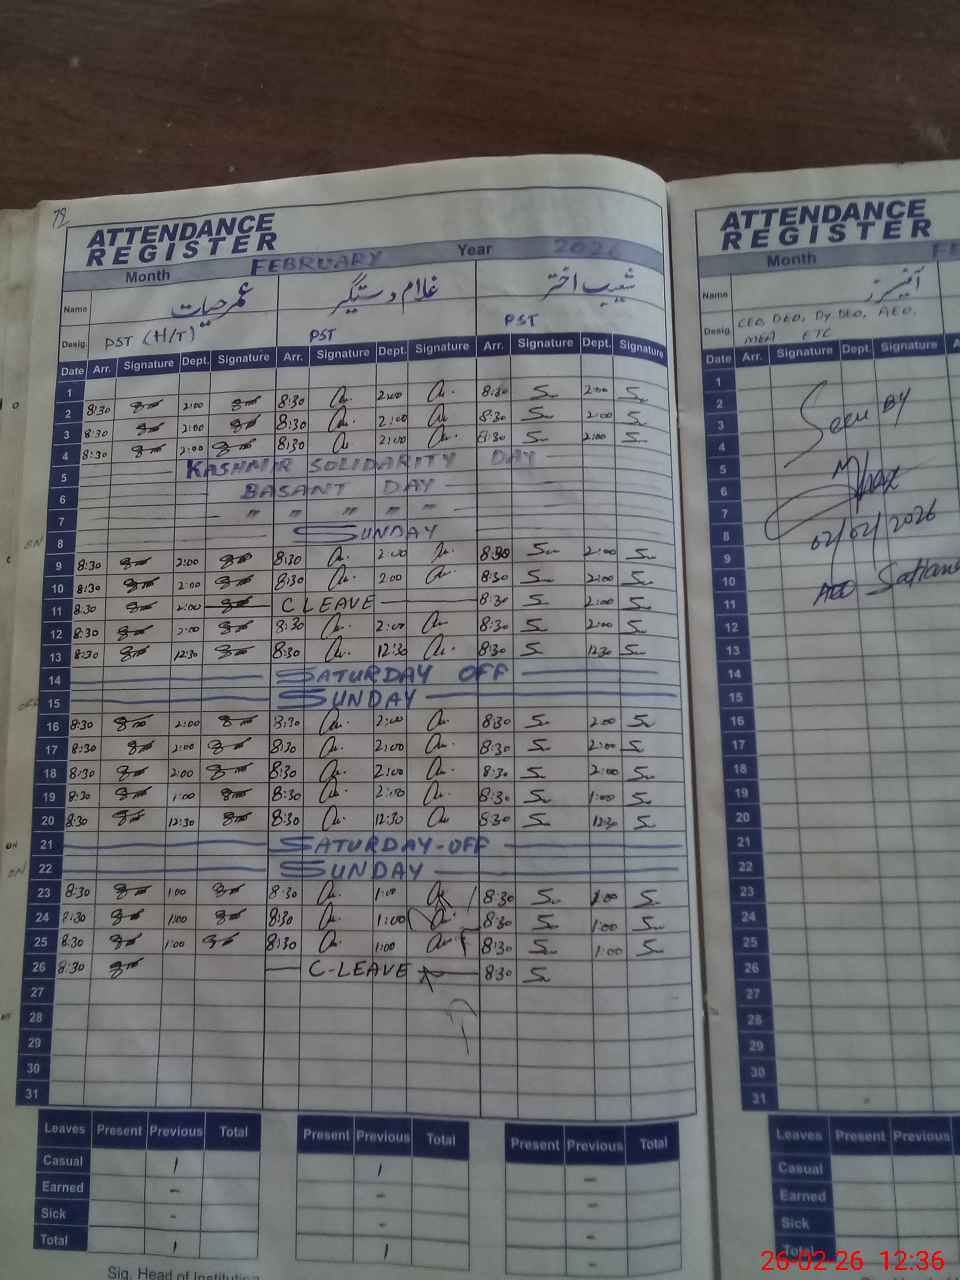 79
ATTENDANCE REGISTER
Month FEBRUARY Year 2026
Name عمر حیات غلام دستگیر شعیب اختر
Desig. PST (H/T) PST PST
Date Arr. Signature Dept. Signature Arr. Signature Dept. Signature Arr. Signature Dept. Signature
1
2 8:30 2:00 8:30 2:00 8:30 2:00
3 8:30 2:00 8:30 2:00 8:30 2:00
4 8:30 2:00 8:30 2:00 8:30 2:00
5 KASHMIR SOLIDARITY DAY
6 BASANT DAY
7 " " " " "
8 SUNDAY
9 8:30 2:00 8:30 2:00 8:30 2:00
10 8:30 2:00 8:30 2:00 8:30 2:00
11 8:30 2:00 C LEAVE 8:30 2:00
12 8:30 2:00 8:30 2:00 8:30 2:00
13 8:30 12:30 8:30 12:30 8:30 12:30
14 SATURDAY OFF
15 SUNDAY
16 8:30 2:00 8:30 2:00 8:30 2:00
17 8:30 2:00 8:30 2:00 8:30 2:00
18 8:30 2:00 8:30 2:00 8:30 2:00
19 8:30 1:00 8:30 2:00 8:30 1:00
20 8:30 12:30 8:30 12:30 8:30 12:30
21 SATURDAY-OFF
22 SUNDAY
23 8:30 1:00 8:30 1:00 8:30 1:00
24 8:30 1:00 8:30 1:00 8:30 1:00
25 8:30 1:00 8:30 1:00 8:30 1:00
26 8:30 C-LEAVE 8:30
27
28
29
30
31
Leaves Present Previous Total Present Previous Total Present Previous Total
Casual 1 1 -
Earned - - -
Sick - -
Total 1 1 -
Sig. Head of
ATTENDANCE REGISTER
Month FE
Name آفیسرز
Desig. CEO, DEO, Dy.DEO, AEO,
MEA ETC
Date Arr. Signature Dept. Signature
1
2
3
4
5
6
7
8
9
10
11
12
13
14
15
16
17
18
19
20
21
22
23
24
25
26
27
28
29
30
31
Seen BY
02/02/2026
AEO
Leaves Present Previous
Casual
Earned
Sick
Total
26-02-26 12:36